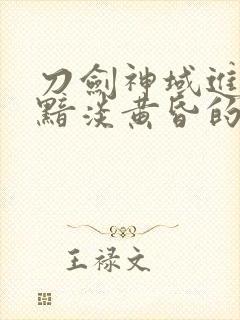 刀劍神域進
黯淡黃昏的
王禄文